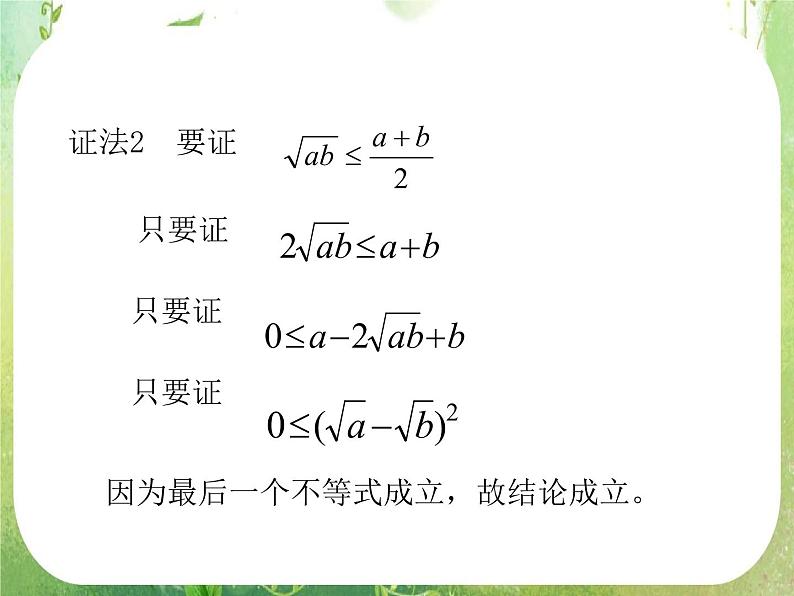 证法2 要证 √ab ≤ (a+b)/2
只要证 2√ab≤a+b
只要证 0≤a−2√ab+b
只要证 0≤(√a−√b)²
因为最后一个不等式成立，故结论成立。